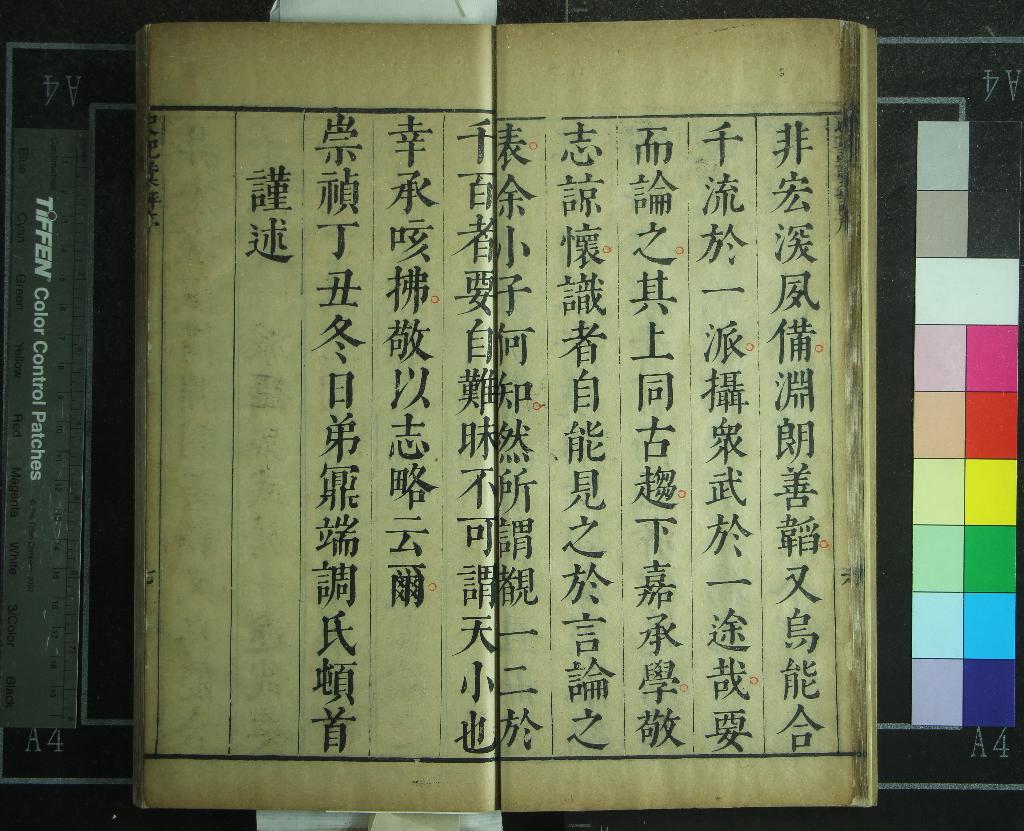 非宏深夙備淵朗善韜又烏能合
千流於一派攝衆武於一途哉要
而論之其上同古趨下嘉承學敬
志諒懷識者自能見之於言論之
表余小子何知然所謂覩一二於
千百者要自難昧不可謂天小也
幸承咳拂敬以志略云爾
崇禎丁丑冬日弟鼏端調氏頓首
謹述
七
A4
A4
A4
A4
TIFFEN Color Control Patches
Blue
Cyan
Green
Yellow
Red
Magenta
White
3/Color
Black